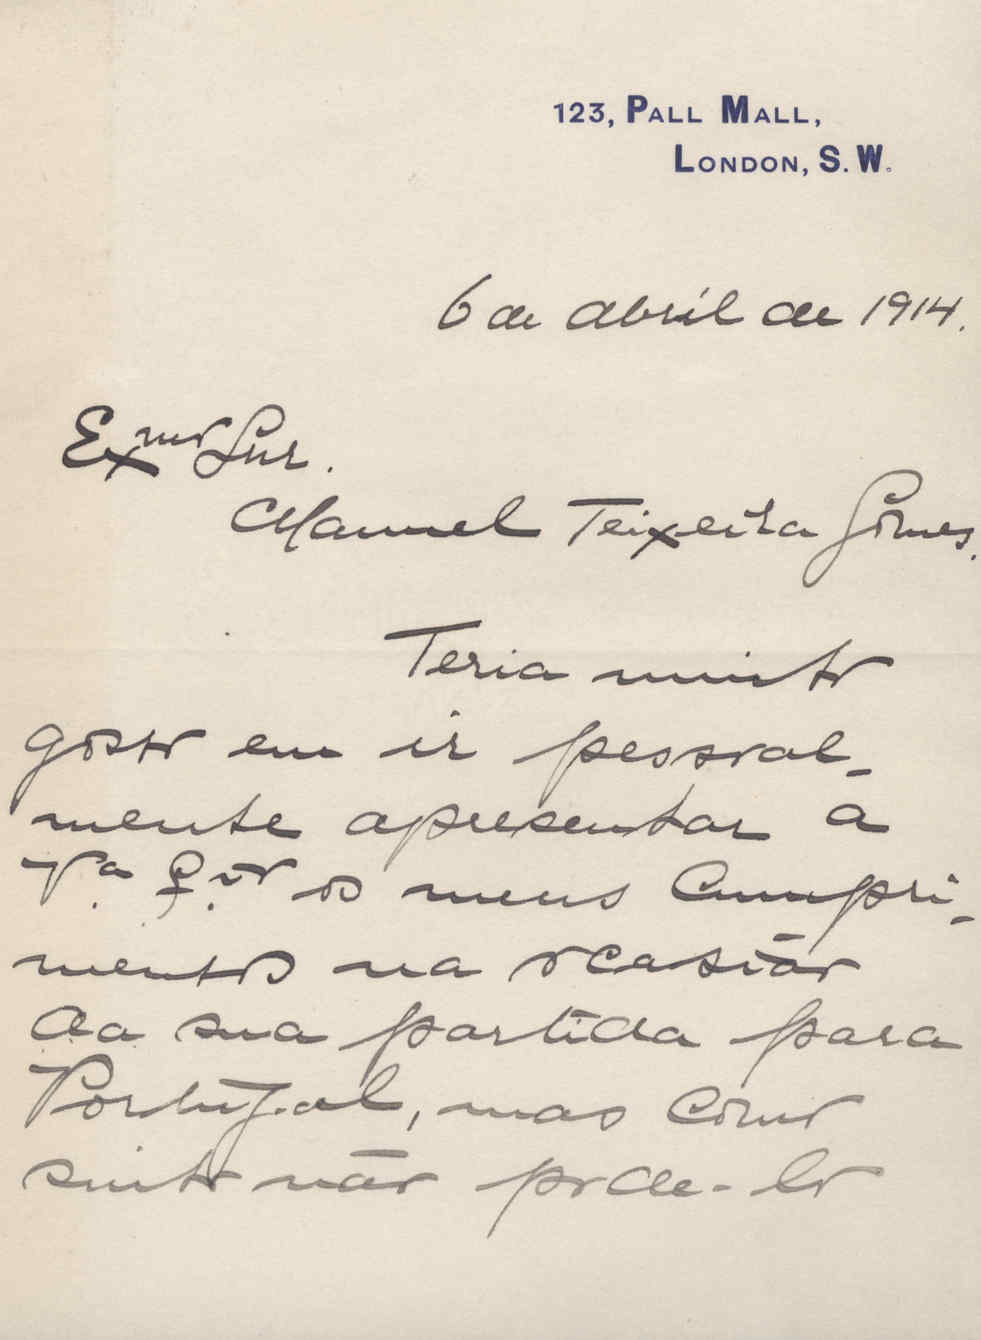 123, PALL MALL,
LONDON, S.W.
6 de abril de 1914.
Exmo Snr.
Manuel Teixeira Gomes.
Teria muito
gosto em ir pessoal-
mente apresentar a
V.a E.cia os meus cumpri-
mentos na ocasião
da sua partida para
Portugal, mas como
sinto não pode-lo